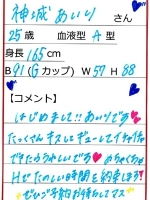 神城あいり さん
25歳 血液型 A型
身長 165cm
B 91 (Gカップ) W 57 H 88
【コメント】
はじめまして!! あいりです
たっくさんキスしてギューしてイチャイチャ
できたらうれしいです めちゃくちゃ
Hでたのしい時間を約束します
ぜひご予約お待ちしてマス